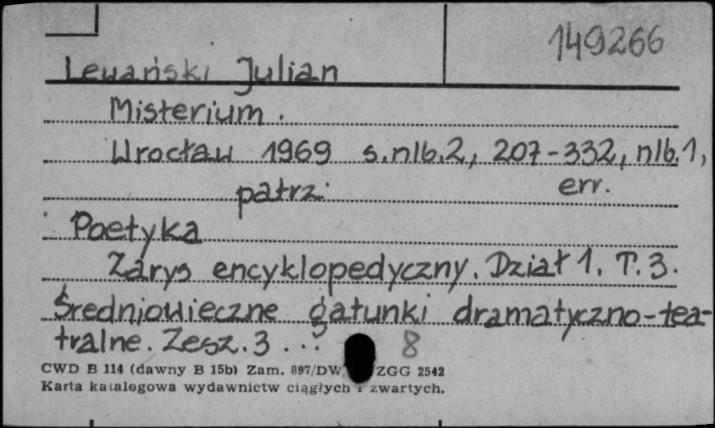 149266
Lewański Julian
Misterium.
Wrocław 1969 s.nlb.2, 207-332, nlb.1,
patrz: err.
Poetyka
Zarys encyklopedyczny. Dział 1. T.3.
Średniowieczne gatunki dramatyczno-tea-
tralne. Zesz.3 ...
8
CWD B 114 (dawny B 15b) Zam. 897/DW ZGG 2542
Karta katalogowa wydawnictw ciągłych i zwartych.